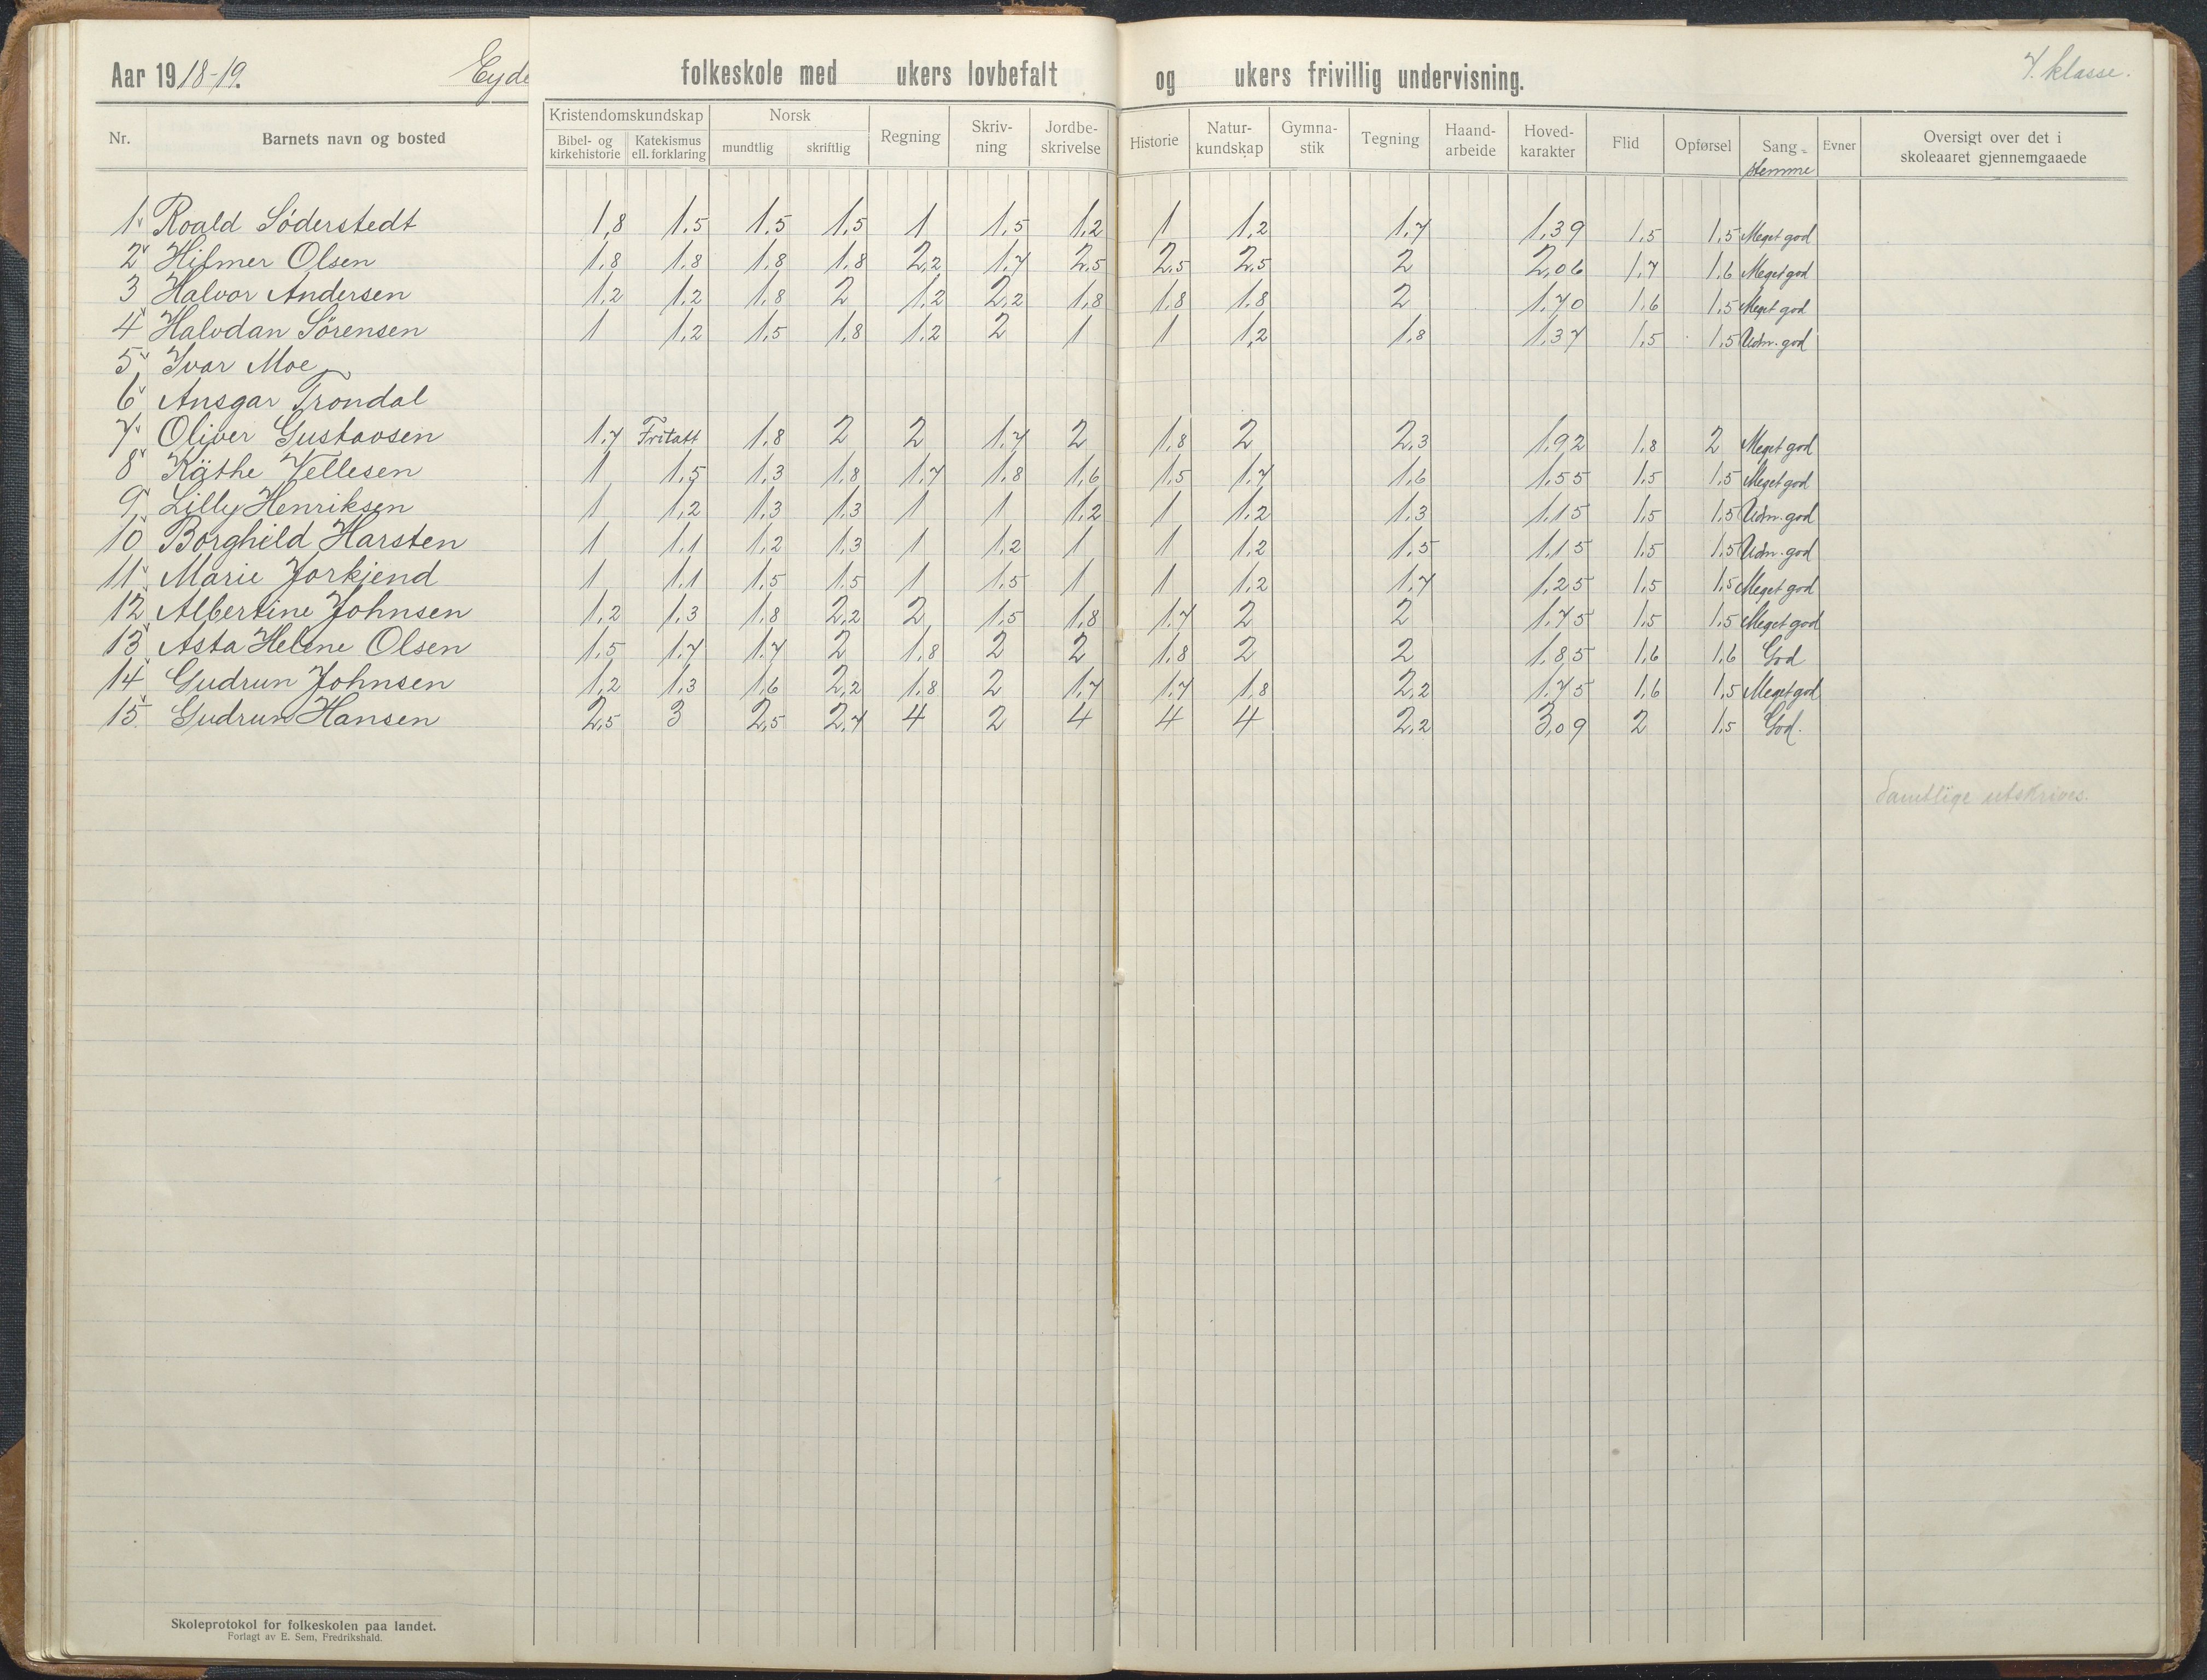 Aar 1918-19. Eyde folkeskole med ukers lovbefalt og ukers frivillig undervisning. 7. klasse.
Nr. Barnets navn og bosted Kristendomskundskap Bibel- og kirkehistorie Katekismus ell. forklaring Norsk mundtlig skriftlig Regning Skriv-ning Jordbe-skrivelse Historie Natur-kundskap Gymna-stik Tegning Haand-arbeide Hoved-karakter Flid Opførsel Sang-stemme Evner Oversigt over det i skoleaaret gjennemgaaede
1. Roald Söderstedt 1,8 1.5 1.5 1.5 1 1.5 1,2 1 1,2 1.7 1.39 1.5 1.5 Meget god
2 Hilmer Olsen 1.8 1.8 1.8 1.8 2,2 1.7 2,5 2,5 2,5 2 2,06 1.7 1.6 Meget god
3 Halvor Andersen 1,2 1,2 1.8 2 1,2 2,2 1,8 1,8 1,8 2 1.70 1.6 1.5 Meget god
4 Halvdan Sörensen 1 1,2 1.5 1.8 1,2 2 1 1 1,2 1.8 1.37 1.5 1.5 Udm. god
5 Ivar Moe
6 Ansgar Trondal
7 Oliver Gustavsen 1.7 Fritatt 1.8 2 2 1.7 2 1.8 2 2,3 1.92 1.8 2 Meget god
8 Käthe Vellesen 1 1.5 1.3 1.8 1.7 1.8 1,6 1.5 1.7 1.6 1.55 1.5 1.5 Meget god
9 Lilly Henriksen 1 1,2 1.3 1.3 1 1 1,2 1 1,2 1.3 1.15 1.5 1.5 Udm. god
10 Borghild Harsten 1 1.1 1,2 1.3 1 1,2 1 1 1,2 1.5 1.15 1.5 1.5 Udm. god
11 Marie Jorkjend 1 1.1 1.5 1.5 1 1.5 1 1 1,2 1.7 1.25 1.5 1.5 Meget god
12 Albertine Johnsen 1,2 1.3 1.8 2,2 2 1.5 1.8 1.7 2 2 1.75 1.5 1.5 Meget god
13 Asta Helene Olsen 1.5 1.7 1.7 2 1.8 2 2 1.8 2 2 1.85 1.6 1.6 God
14 Gudrun Johnsen 1,2 1.3 1.6 2,2 1.8 2 1.7 1.7 1.8 2,2 1.75 1.6 1.5 Meget god
15 Gudrun Hansen 2,5 3 2,5 2,7 4 2 4 4 4 2,2 3,09 2 1.5 God.
Samtlige utskrives.
Skoleprotokol for folkeskolen paa landet.
Forlagt av E. Sem, Fredrikshald.